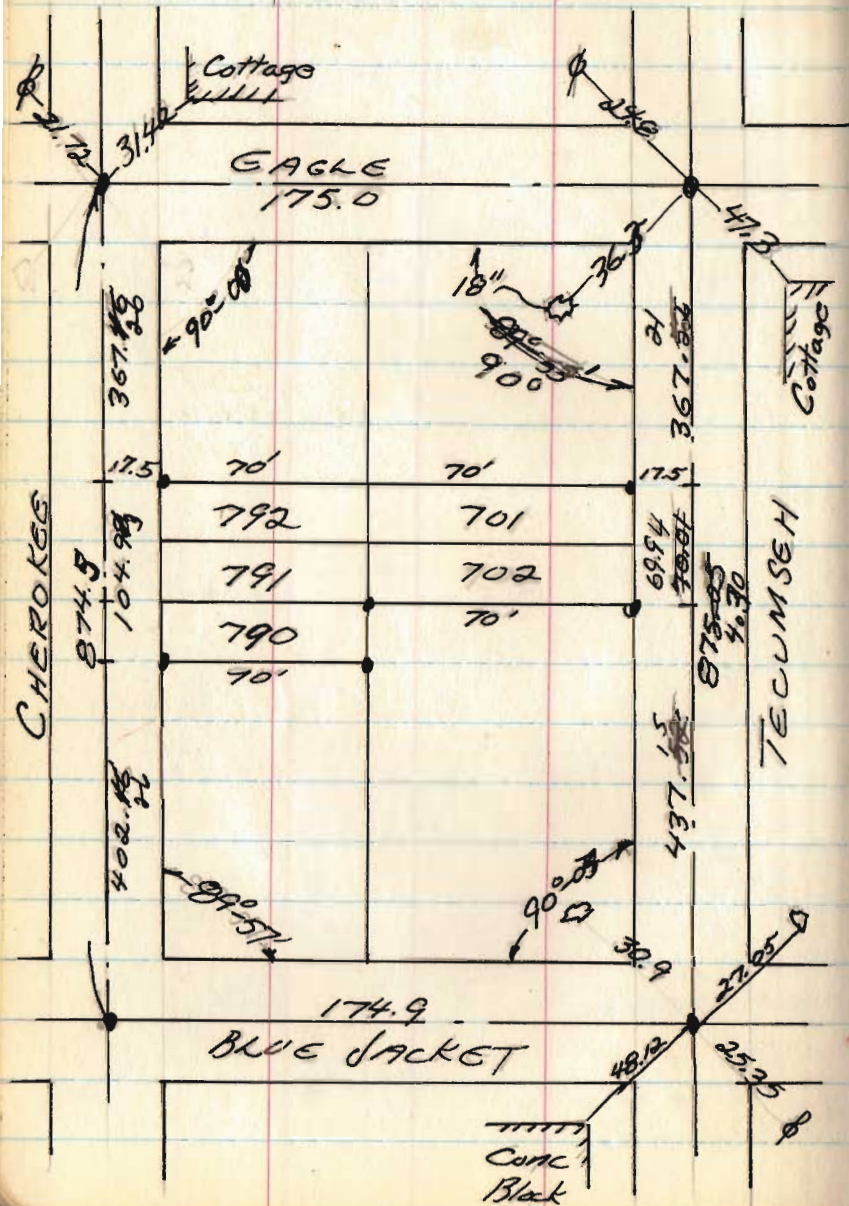 Cottage
21.72
31.42
24.8
EAGLE
175.0
47.3
36.3
18"
90°-00'
90°
Cottage
367.
26
21
367.
17.5
70'
70'
17.5
792
701
791
702
790
70'
70'
CHEROKEE
874.5
104.98
69.94
70.01
875.05
4.30
TECUMSEH
402.
26
437.
15
89°-57'
90°-03'
30.9
27.05
174.9
BLUE JACKET
48.12
25.35
Conc
Block